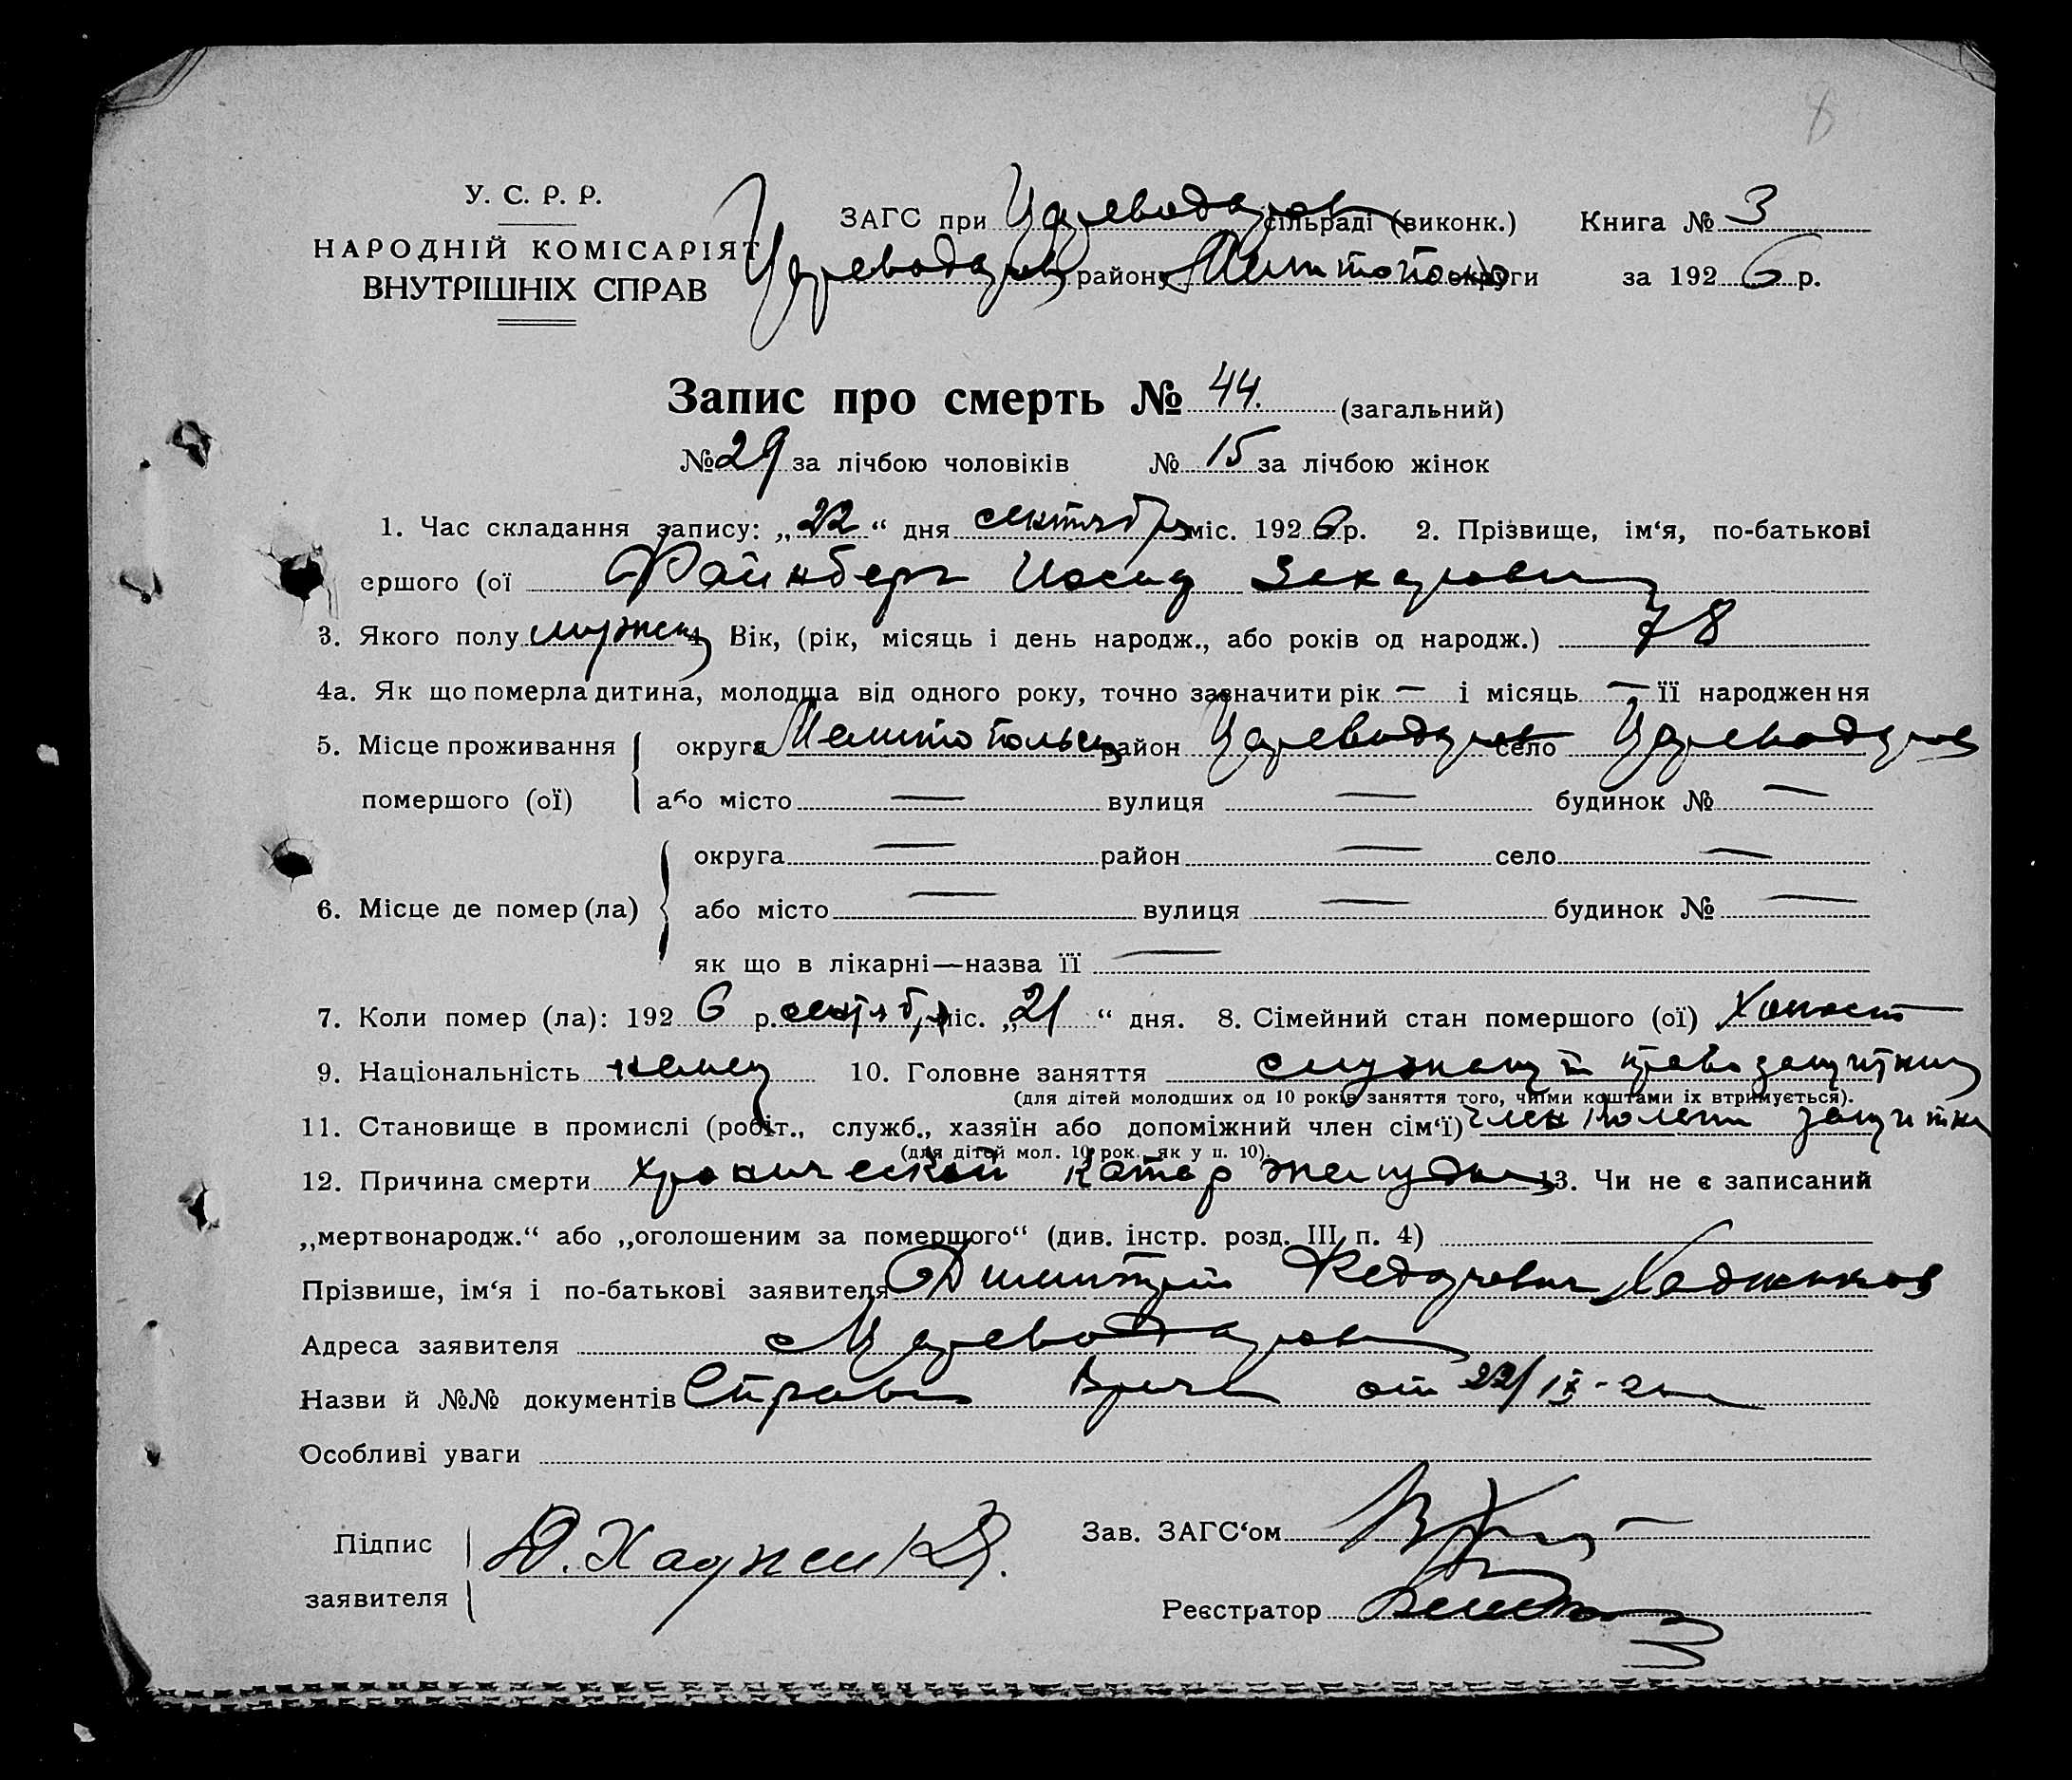 8
У. С. Р. Р.
НАРОДНІЙ КОМІСАРІЯТ
ВНУТРІШНІХ СПРАВ
ЗАГС при Цареводаров сільраді (виконк.) Книга № 3
Цареводаров району Мелитополь округи за 1926 р.
Запис про смерть № 44. (загальний)
№ 29 за лічбою чоловіків № 15 за лічбою жінок
1. Час складання запису: „22“ дня сентября міс. 1926 р. 2. Прізвище, ім‘я, по-батькові
єршого (ої Файнберг Иосиф Захарович
3. Якого полу мужск 4 Вік, (рік, місяць і день народж., або років од народж.) 78
4а. Як що померла дитина, молодша від одного року, точно зазначити рік — і місяць — її народження
5. Місце проживання округа Мелитопольск район Цареводаров село Цареводаров
помершого (ої) або місто — вулиця — будинок № —
округа — район — село —
6. Місце де помер (ла) або місто — вулиця — будинок № —
як що в лікарні—назва її —
7. Коли помер (ла): 1926 р. сентября міс. „21“ дня. 8. Сімейний стан помершого (ої) Холост
9. Національність немец 10. Головне заняття служащий правозащитник
(для дітей молодших од 10 років заняття того, чиїми коштами їх втримується).
11. Становище в промислі (робіт., служб., хазяїн або допоміжний член сім‘ї) член колегии защитн
(для дітей мол. 10 рок. як у п. 10).
12. Причина смерти хронический катар желудка 13. Чи не є записаний
„мертвонародж.“ або „оголошеним за помершого“ (див. інстр. розд. III, п. 4)
Прізвише, ім‘я і по-батькові заявителя Димитрий Федорович Хаджиков
Адреса заявителя с Цареводаров
Назви й №№ документів Справка Врача от 22/IX-26
Особливі уваги
Підпис
заявителя
Д. Хаджиков.
Зав. ЗАГС‘ом
Реєстратор